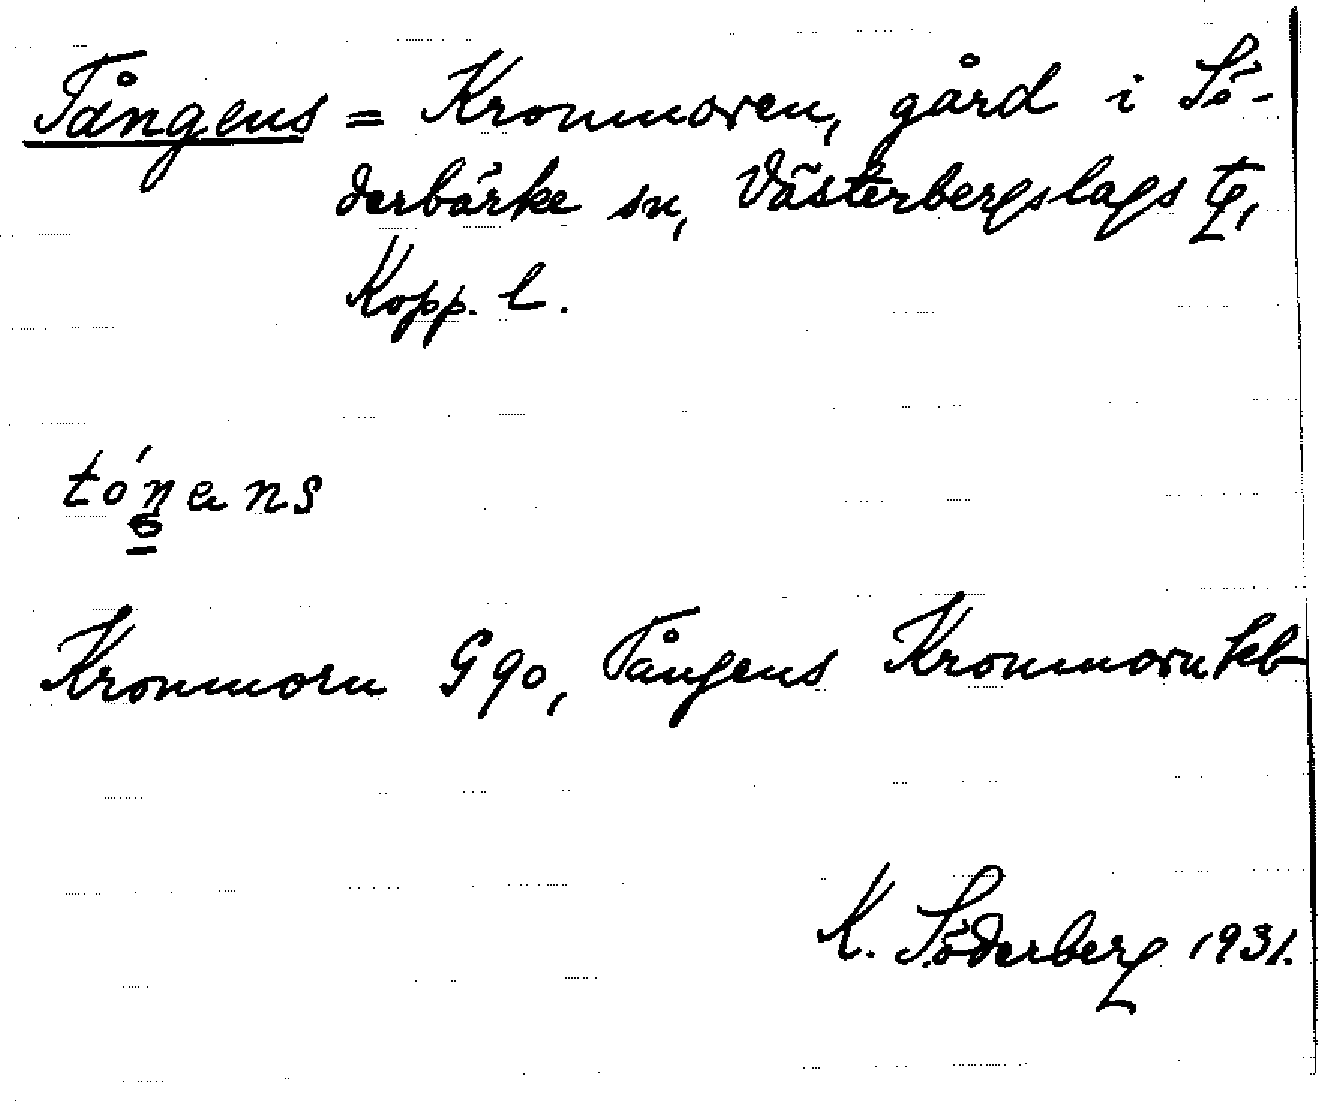 Tångens = Kronmoren, gård i Sö-
derbärke sn, Västerbergslags tg,
Kopp. l.
tóŋens
Kronmorn G90, Tångens Kronmorn kb
K. Söderberg 1931.